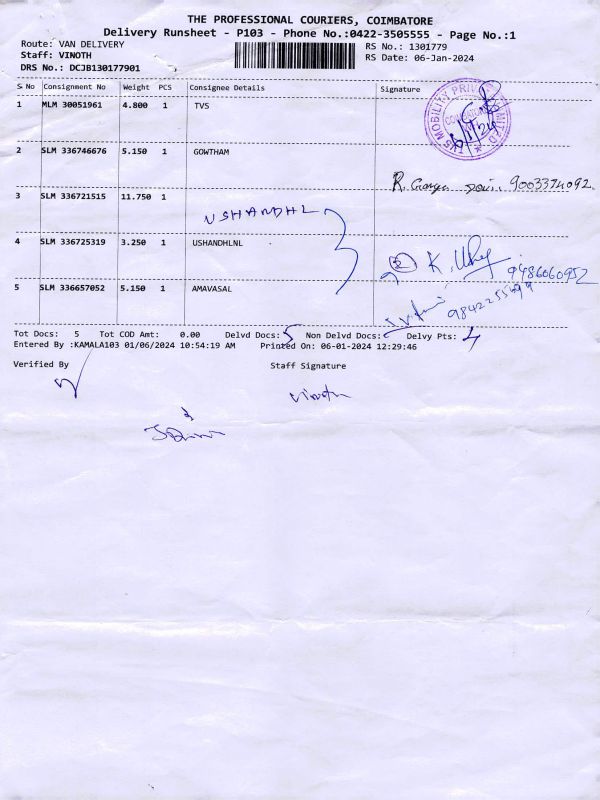 THE PROFESSIONAL COURIERS, COIMBATORE
Delivery Runsheet - P103 - Phone No.:0422-3505555 - Page No.:1
Route: VAN DELIVERY RS No.: 1301779
Staff: VINOTH RS Date: 06-Jan-2024
DRS No.: DCJB130177901
S No Consignment No Weight PCS Consignee Details Signature
1 MLM 30051961 4.800 1 TVS
MOBILITY PRIV
6/1/24
2 SLM 336746676 5.150 1 GOWTHAM
R. 9003374092
3 SLM 336721515 11.750 1
USHANDHL
4 SLM 336725319 3.250 1 USHANDHLNL
2 K. 9486060952
5 SLM 336657052 5.150 1 AMAVASAL
9842255499
Tot Docs: 5 Tot COD Amt: 0.00 Delvd Docs: 5 Non Delvd Docs: Delvy Pts: 4
Entered By :KAMALA103 01/06/2024 10:54:19 AM Printed On: 06-01-2024 12:29:46
Verified By Staff Signature
Vinoth